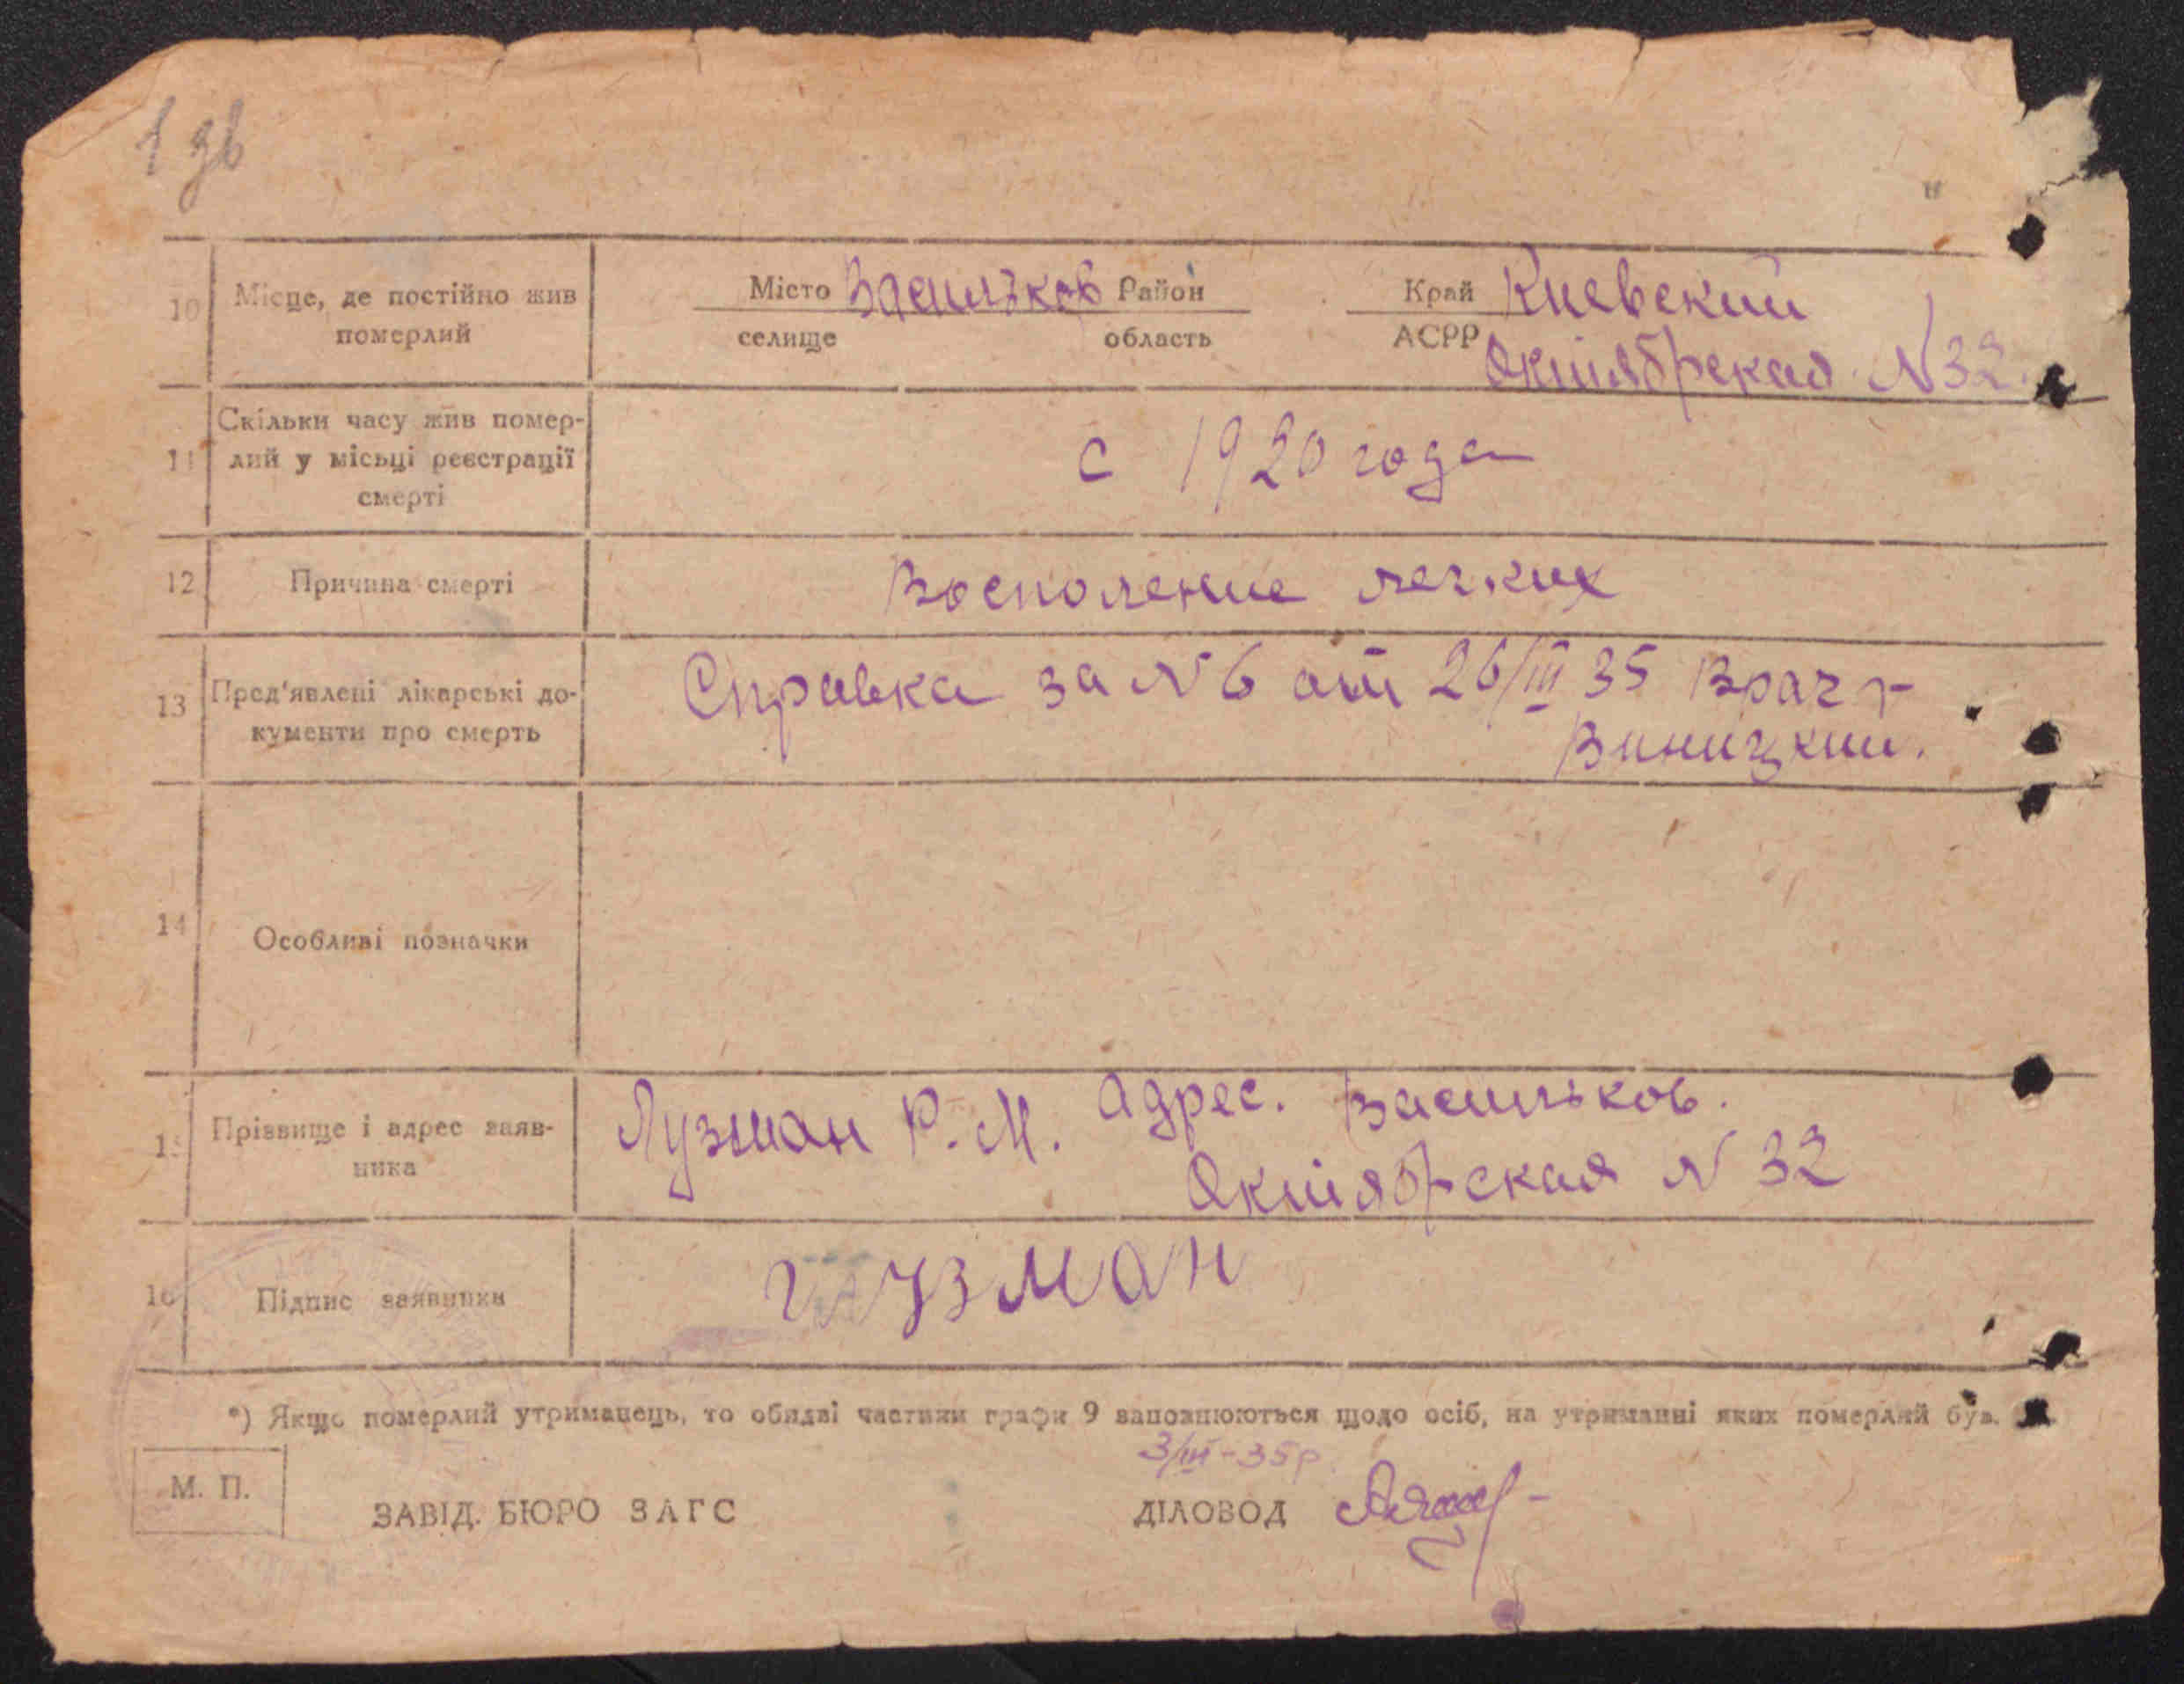 1 зв
10 Місце, де постійно жив померлий
Місто Васильков Район Край Киевский
селище область АСРР Октябрская N 32.
11 Скільки часу жив помер-
лий у місьці реєстрації
смерті
с 1920 года
12 Причина смерті Восполение легких
13 Пред'явлені лікарські до-
кументи про смерть
Справка за N 6 от 26/III 35 Врач
Виницкий.
14 Особливі позначки
15 Прізвище і адрес заяв-
ника
Лузман Р. М. Адрес. Васильков.
Октябрская N 32
16 Підпис заявника узман
*) Якщо померлий утриманець, то обидві частини графи 9 заповнюються щодо осіб, на утриманні яких померлий був.
3/III-35р.
М. П.
ЗАВІД. БЮРО ЗАГС ДІЛОВОД